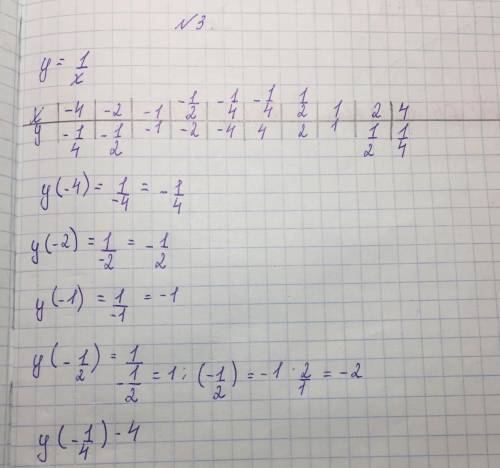 №3.
y = 1/x
x | -4 | -2 | -1 | -1/2 | -1/4 | -1/4 | 1/2 | 1 | 2 | 4
y | -1/4 | -1/2 | -1 | -2 | -4 | 4 | 2 | 1 | 1/2 | 1/4
y(-4) = 1/-4 = -1/4
y(-2) = 1/-2 = -1/2
y(-1) = 1/-1 = -1
y(-1/2) = 1/-1/2 = 1 : (-1/2) = -1 · 2/1 = -2
y(-1/4) - 4